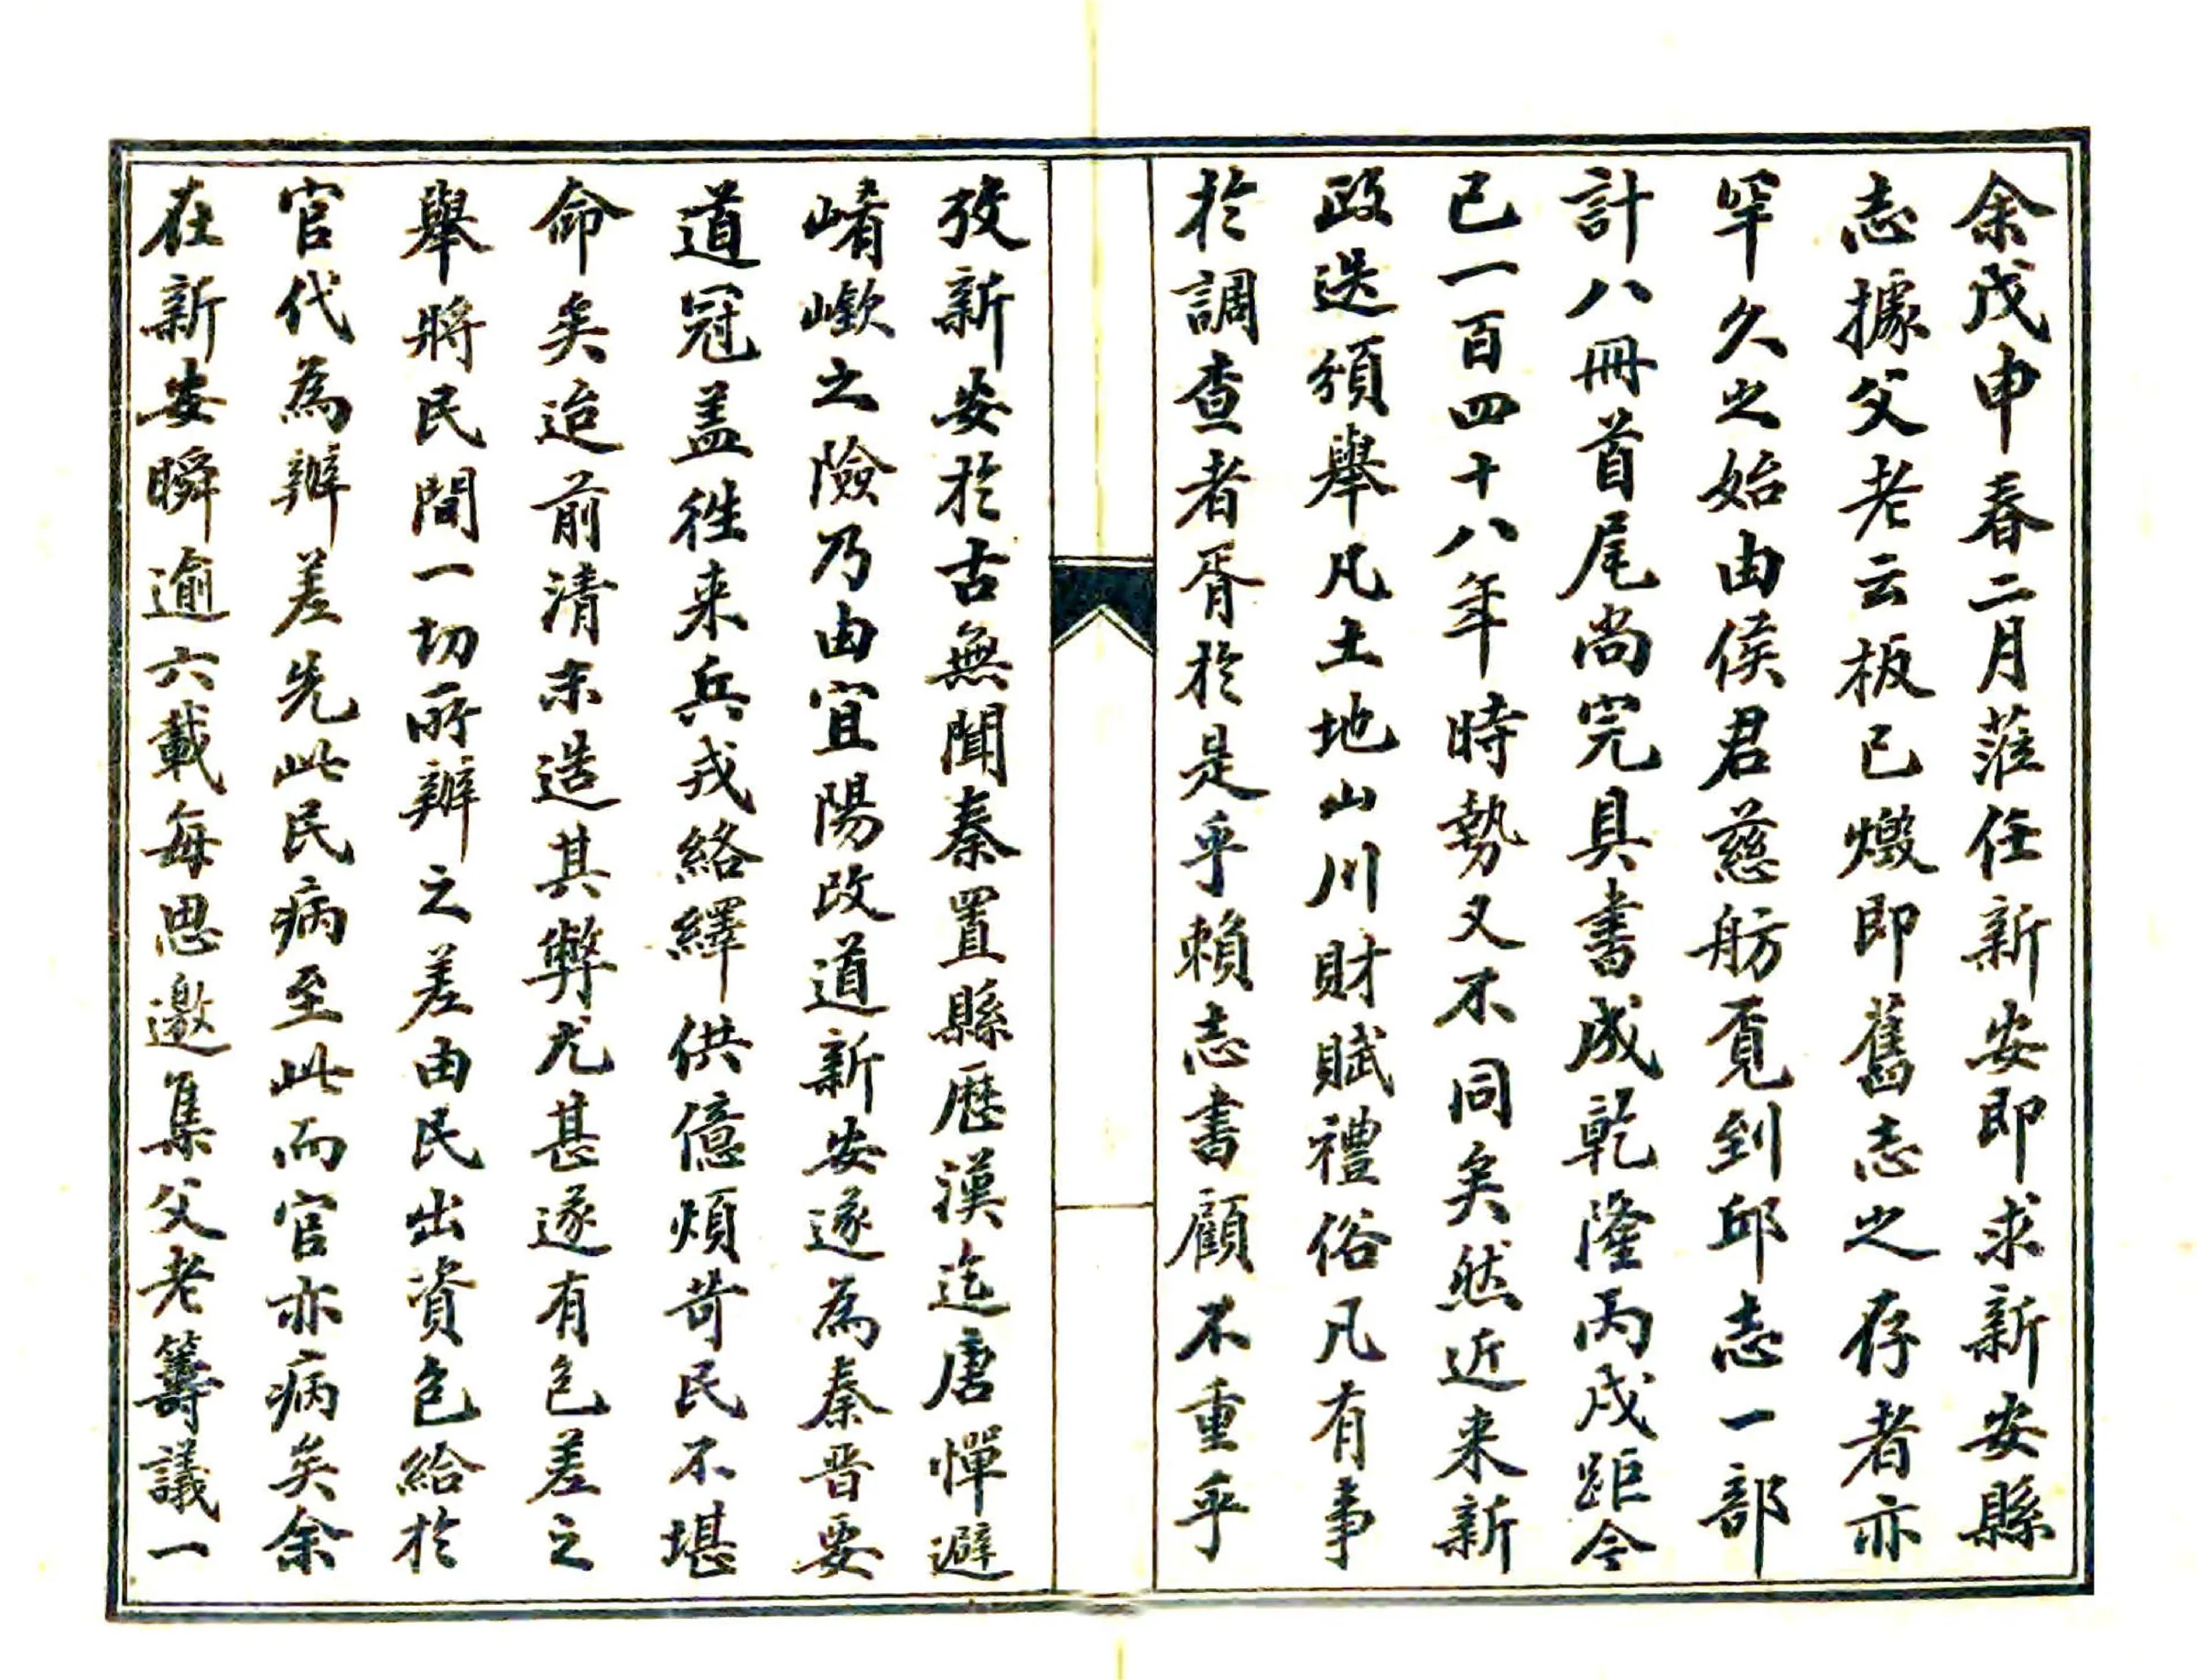 余戊申春二月蒞任新安即求新安縣
志據父老云板已燬即舊志之存者亦
罕久之始由侯君慈舫覓到邱志一部
計八冊首尾尚完具書成乾隆丙戌距今
已一百四十八年時勢又不同矣然近来新
政迭頒舉凡土地山川財賦禮俗凡有事
於調查者胥於是乎賴志書顧不重乎
攷新安於古無聞秦置縣歷漢迄唐憚避
崤嶔之險乃由宜陽改道新安遂為秦晋要
道冠盖徃来兵戎絡繹供億煩苛民不堪
命矣迨前清末造其弊尤甚遂有包差之
舉將民間一切所辦之差由民出資包給於
官代為辦差先此民病至此而官亦病矣余
在新安瞬逾六載每思邀集父老籌議一